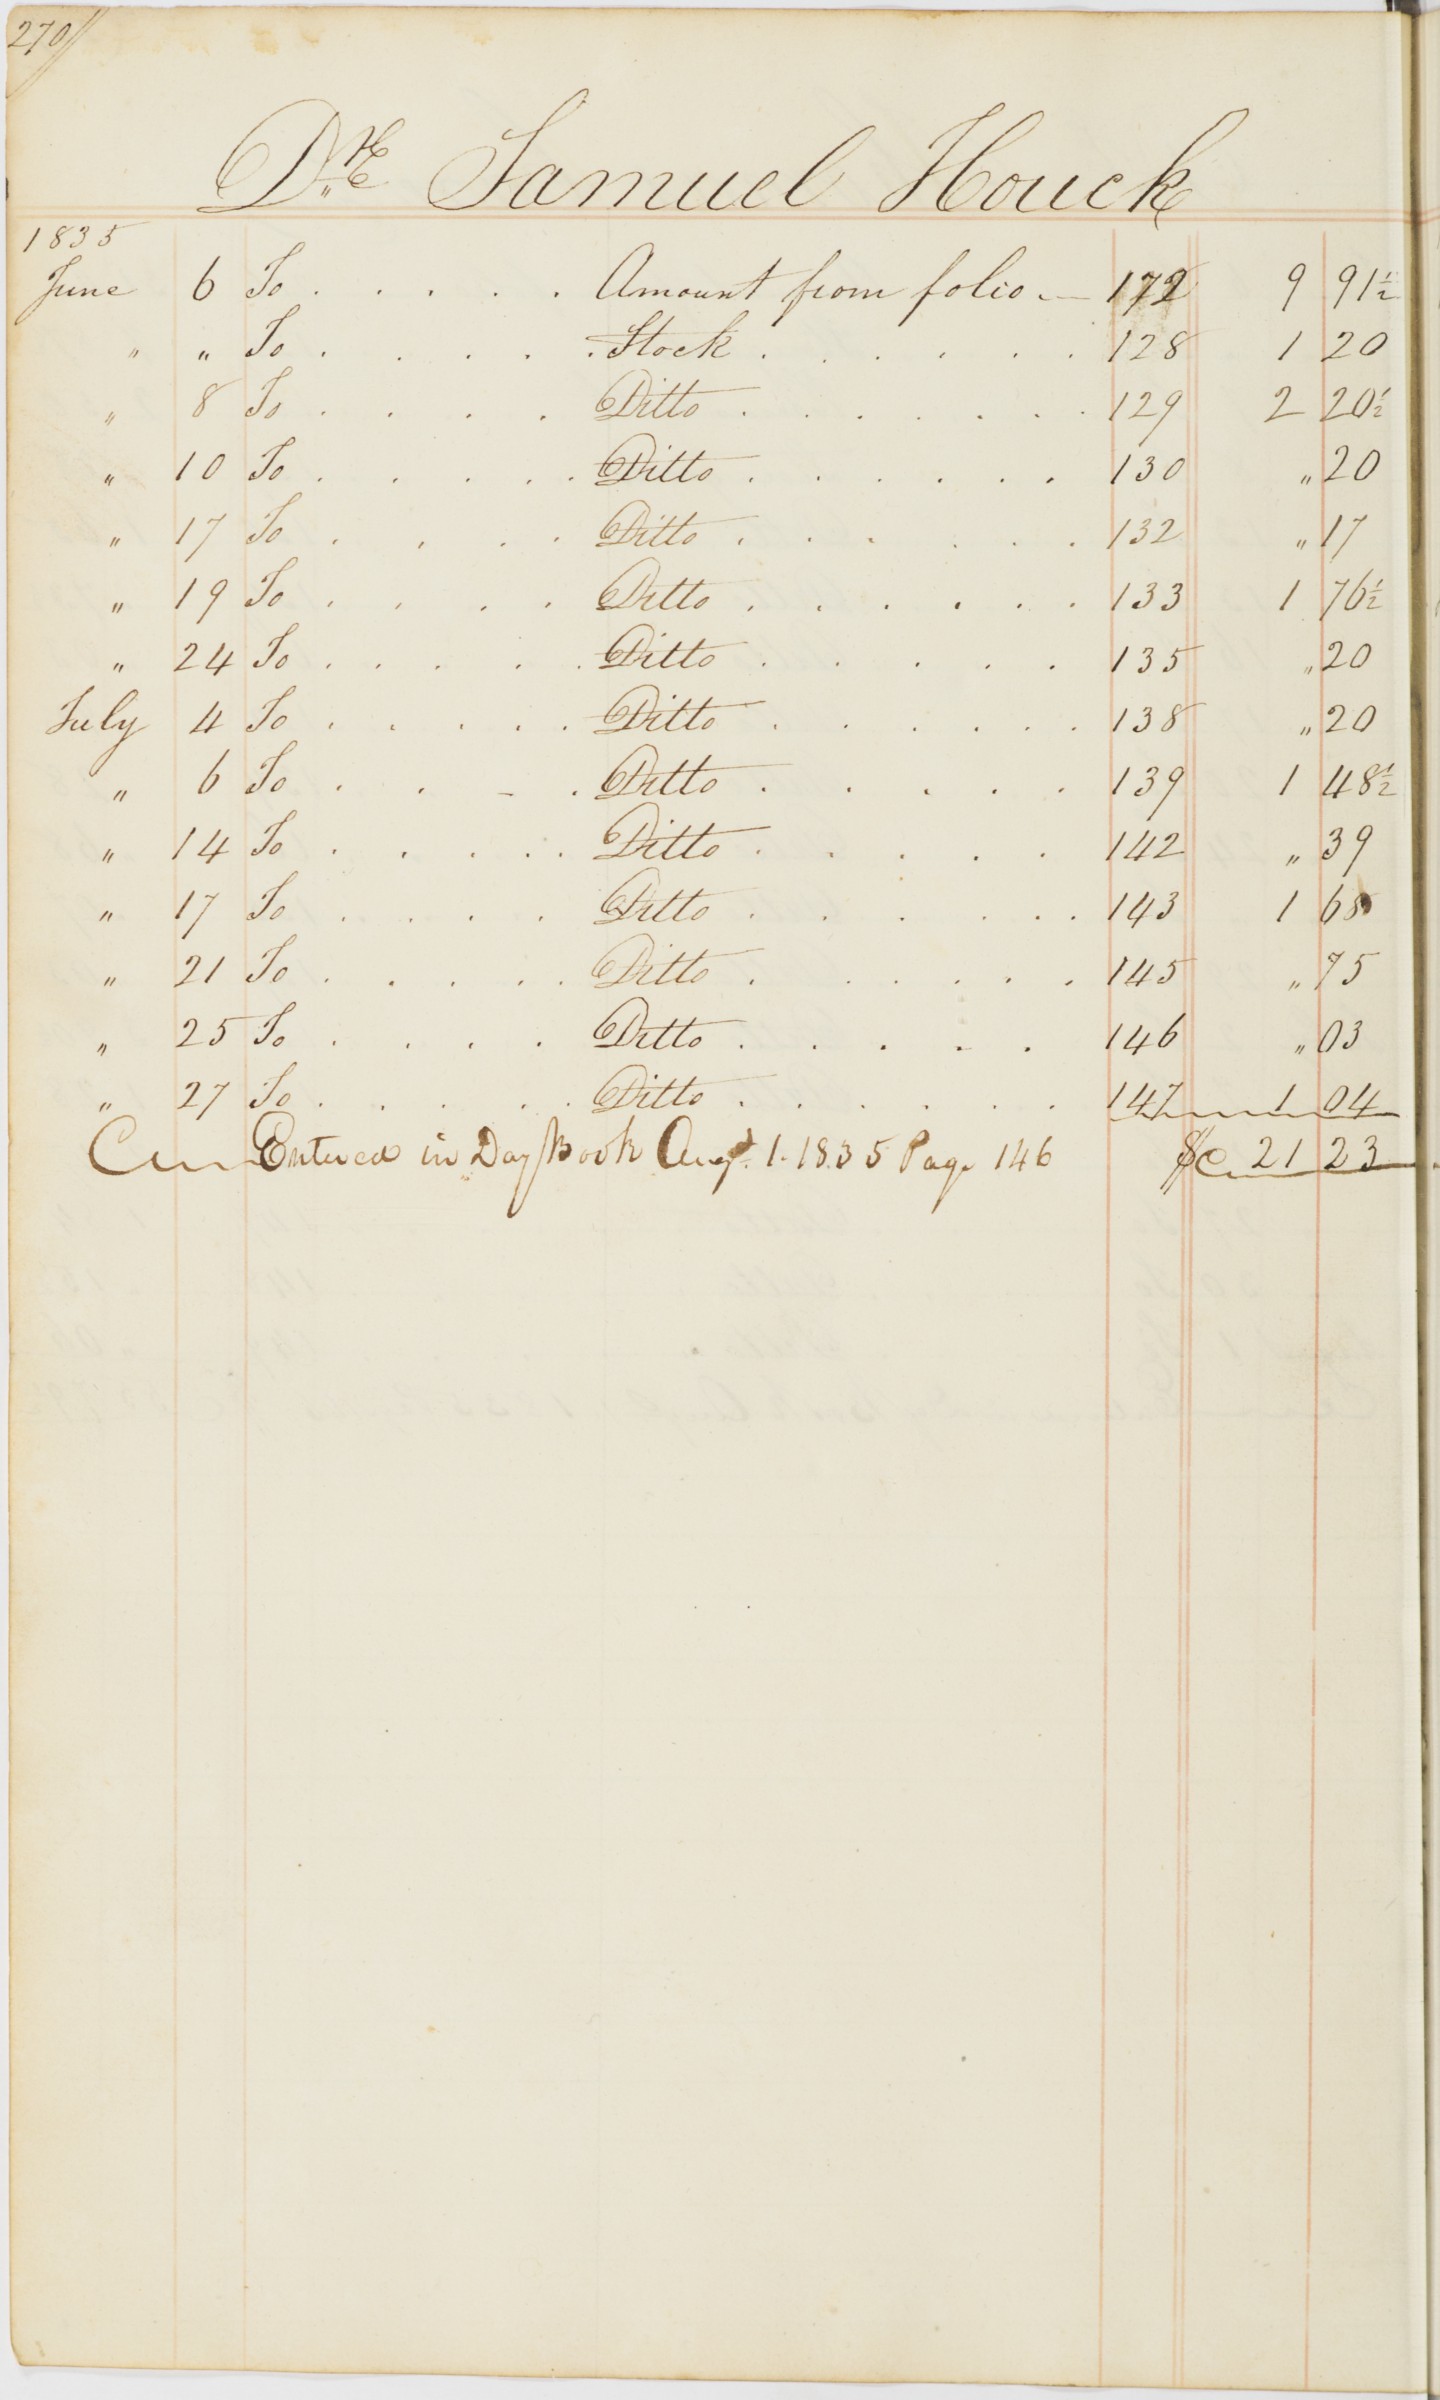 270
Dr Samuel Houck
1835
June 6 To . . . . . Amount from folio . — 172 9 91½
" " To . . . . . Stock . . . . . . 128 1 20
" 8 To . . . . Ditto . . . . . . . 129 2 20½
" 10 To . . . . . Ditto . . . . . . 130 " 20
" 17 To . . . . Ditto . . . . . . 132 " 17
" 19 To . . . . Ditto . . . . . . 133 1 76½
" 24 To . . . . . Ditto . . . . . 135 " 20
July 4 To . . . . . Ditto . . . . . . 138 " 20
" 6 To . . - . Ditto . . . . . 139 1 48½
" 14 To . . . . . Ditto . . . . . 142 " 39
" 17 To . . . . Ditto . . . . . . 143 1 68
" 21 To . . . . . Ditto . . . . . . 145 " 75
" 25 To . . . . Ditto . . . . . 146 " 03
" 27 To . . . . . Ditto . . . . . . 147 1 04
Entered in Day Book Augt. 1. 1835 Page 146 $ 21 23